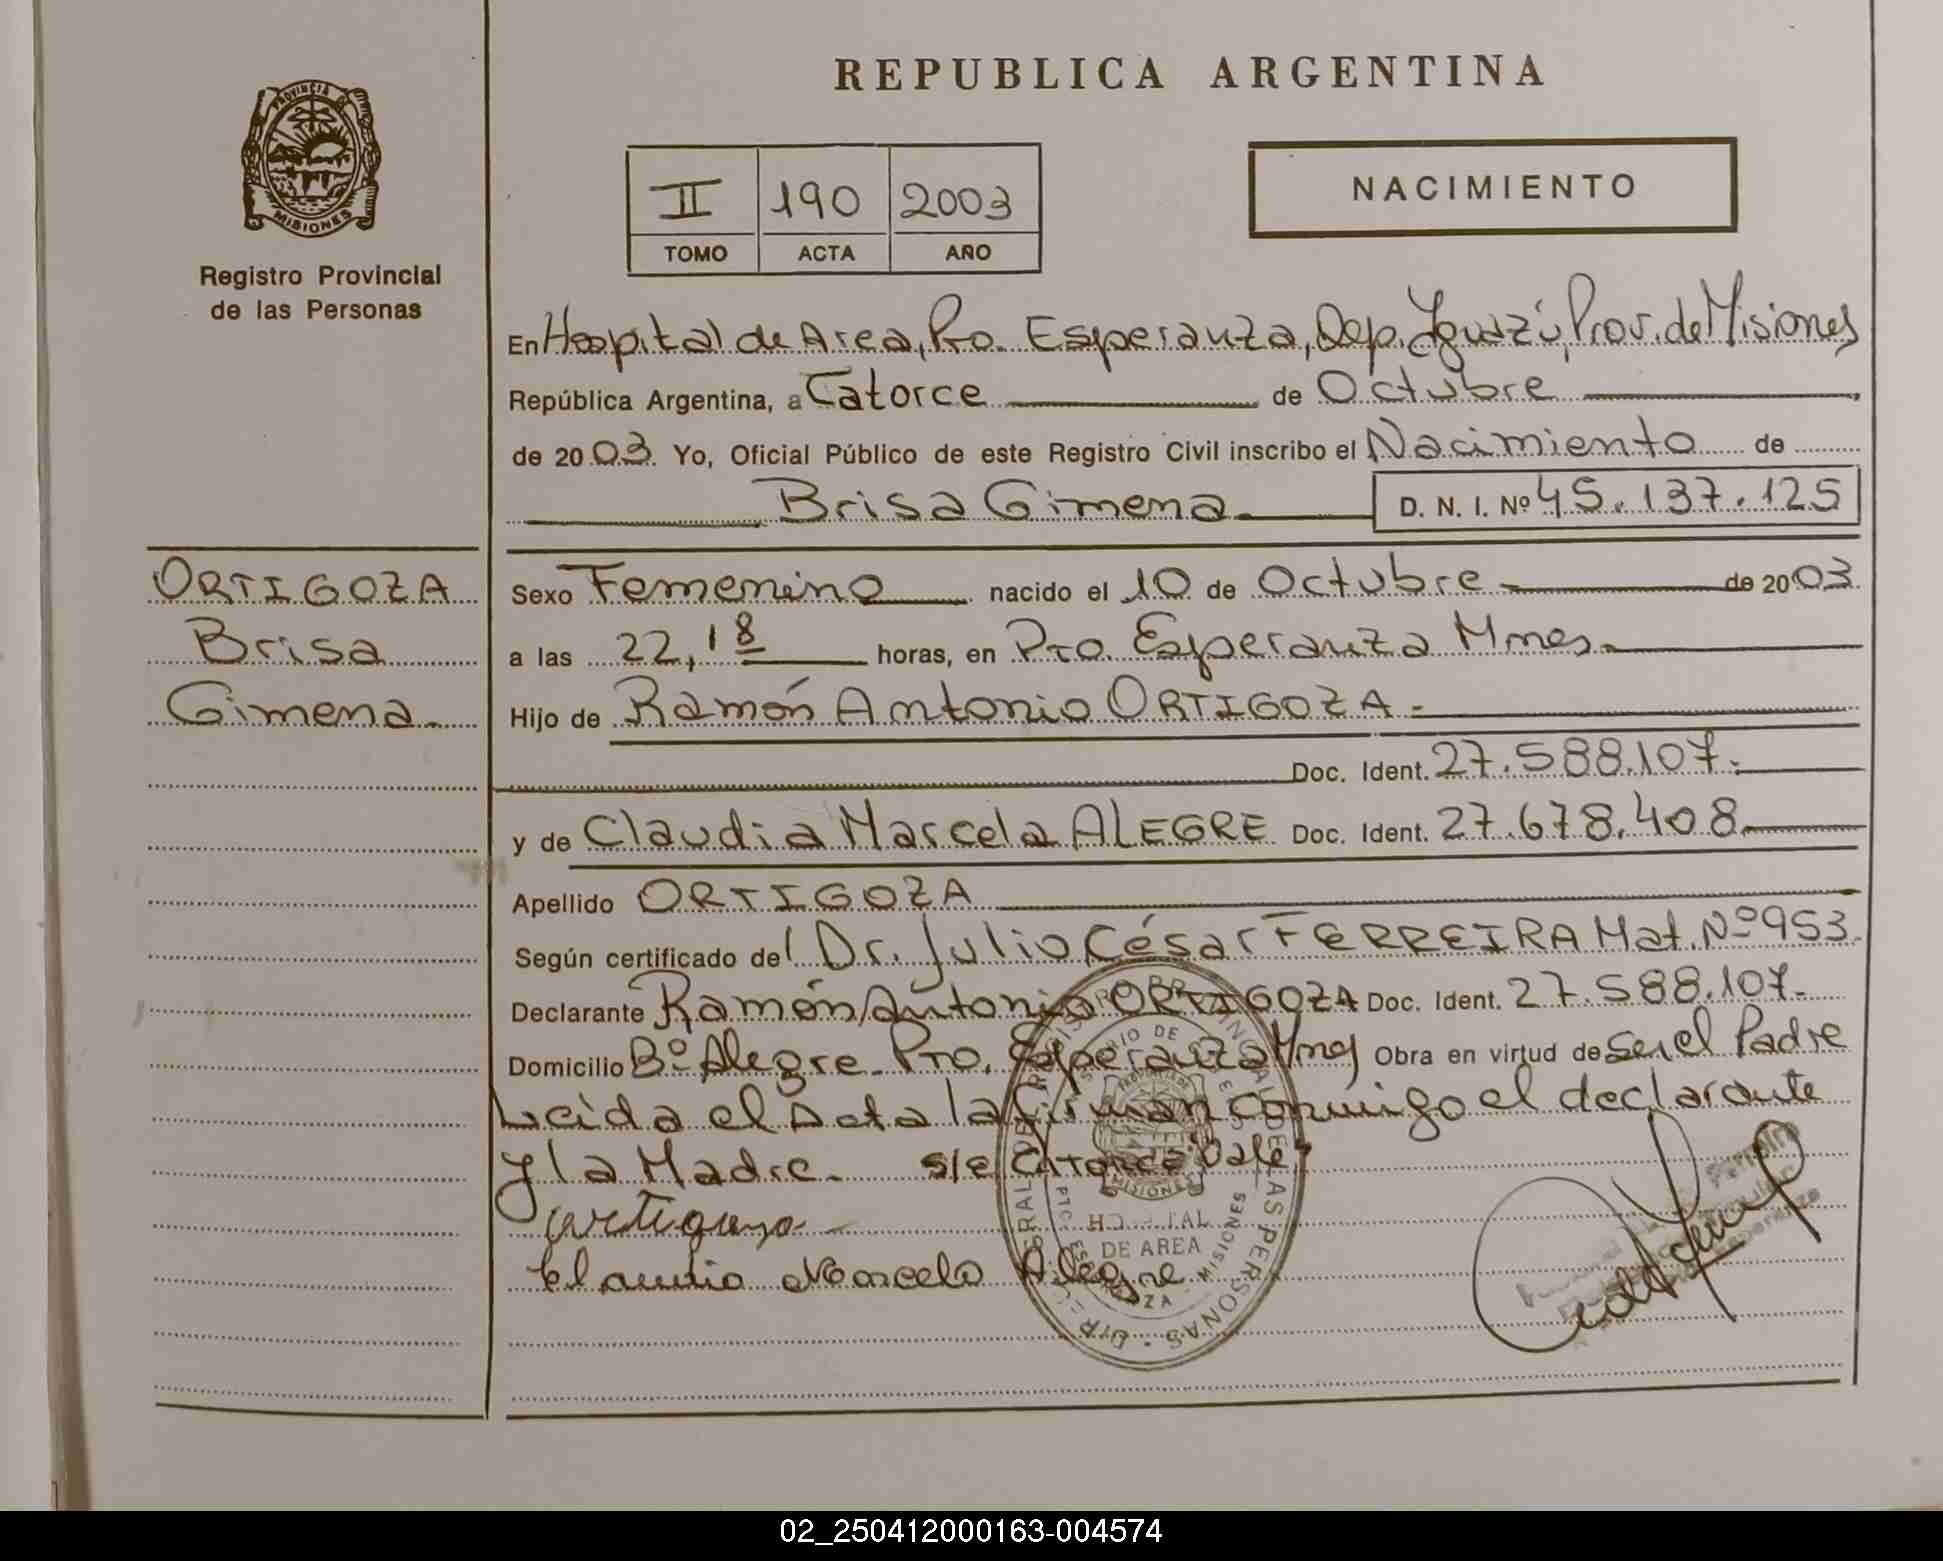 REPUBLICA ARGENTINA
PROVINCIA DE
MISIONES
Registro Provincial
de las Personas
II 190 2003
TOMO ACTA AÑO
NACIMIENTO
En Hospital de Area, Pto. Esperanza, Dep. Iguazú, Prov. de Misiones
República Argentina, a Catorce de Octubre
de 2003. Yo, Oficial Público de este Registro Civil inscribo el Nacimiento de
Brisa Gimena D. N. I. Nº 45.137.125
ORTIGOZA
Brisa
Gimena.
Sexo Femenino nacido el 10 de Octubre de 2003
a las 22,18 horas, en Pto. Esperanza Mnes.
Hijo de Ramón Antonio ORTIGOZA.
Doc. Ident. 27.588.107.
y de Claudia Marcela ALEGRE Doc. Ident. 27.678.408
Apellido ORTIGOZA
Según certificado del Dr. Julio César FERREIRA Mat. Nº 953
Declarante Ramón Antonio ORTIGOZA Doc. Ident. 27.588.107.
Domicilio Bº Alegre. Pto. Esperanza Mnes Obra en virtud de Ser el Padre
Leída el Acta la firman conmigo el declarante
y la Madre. s/e Catorce Vale
ortigoza
Claudia Marcela Alegre
HOSPITAL
DE AREA
MISIONES
02_250412000163-004574